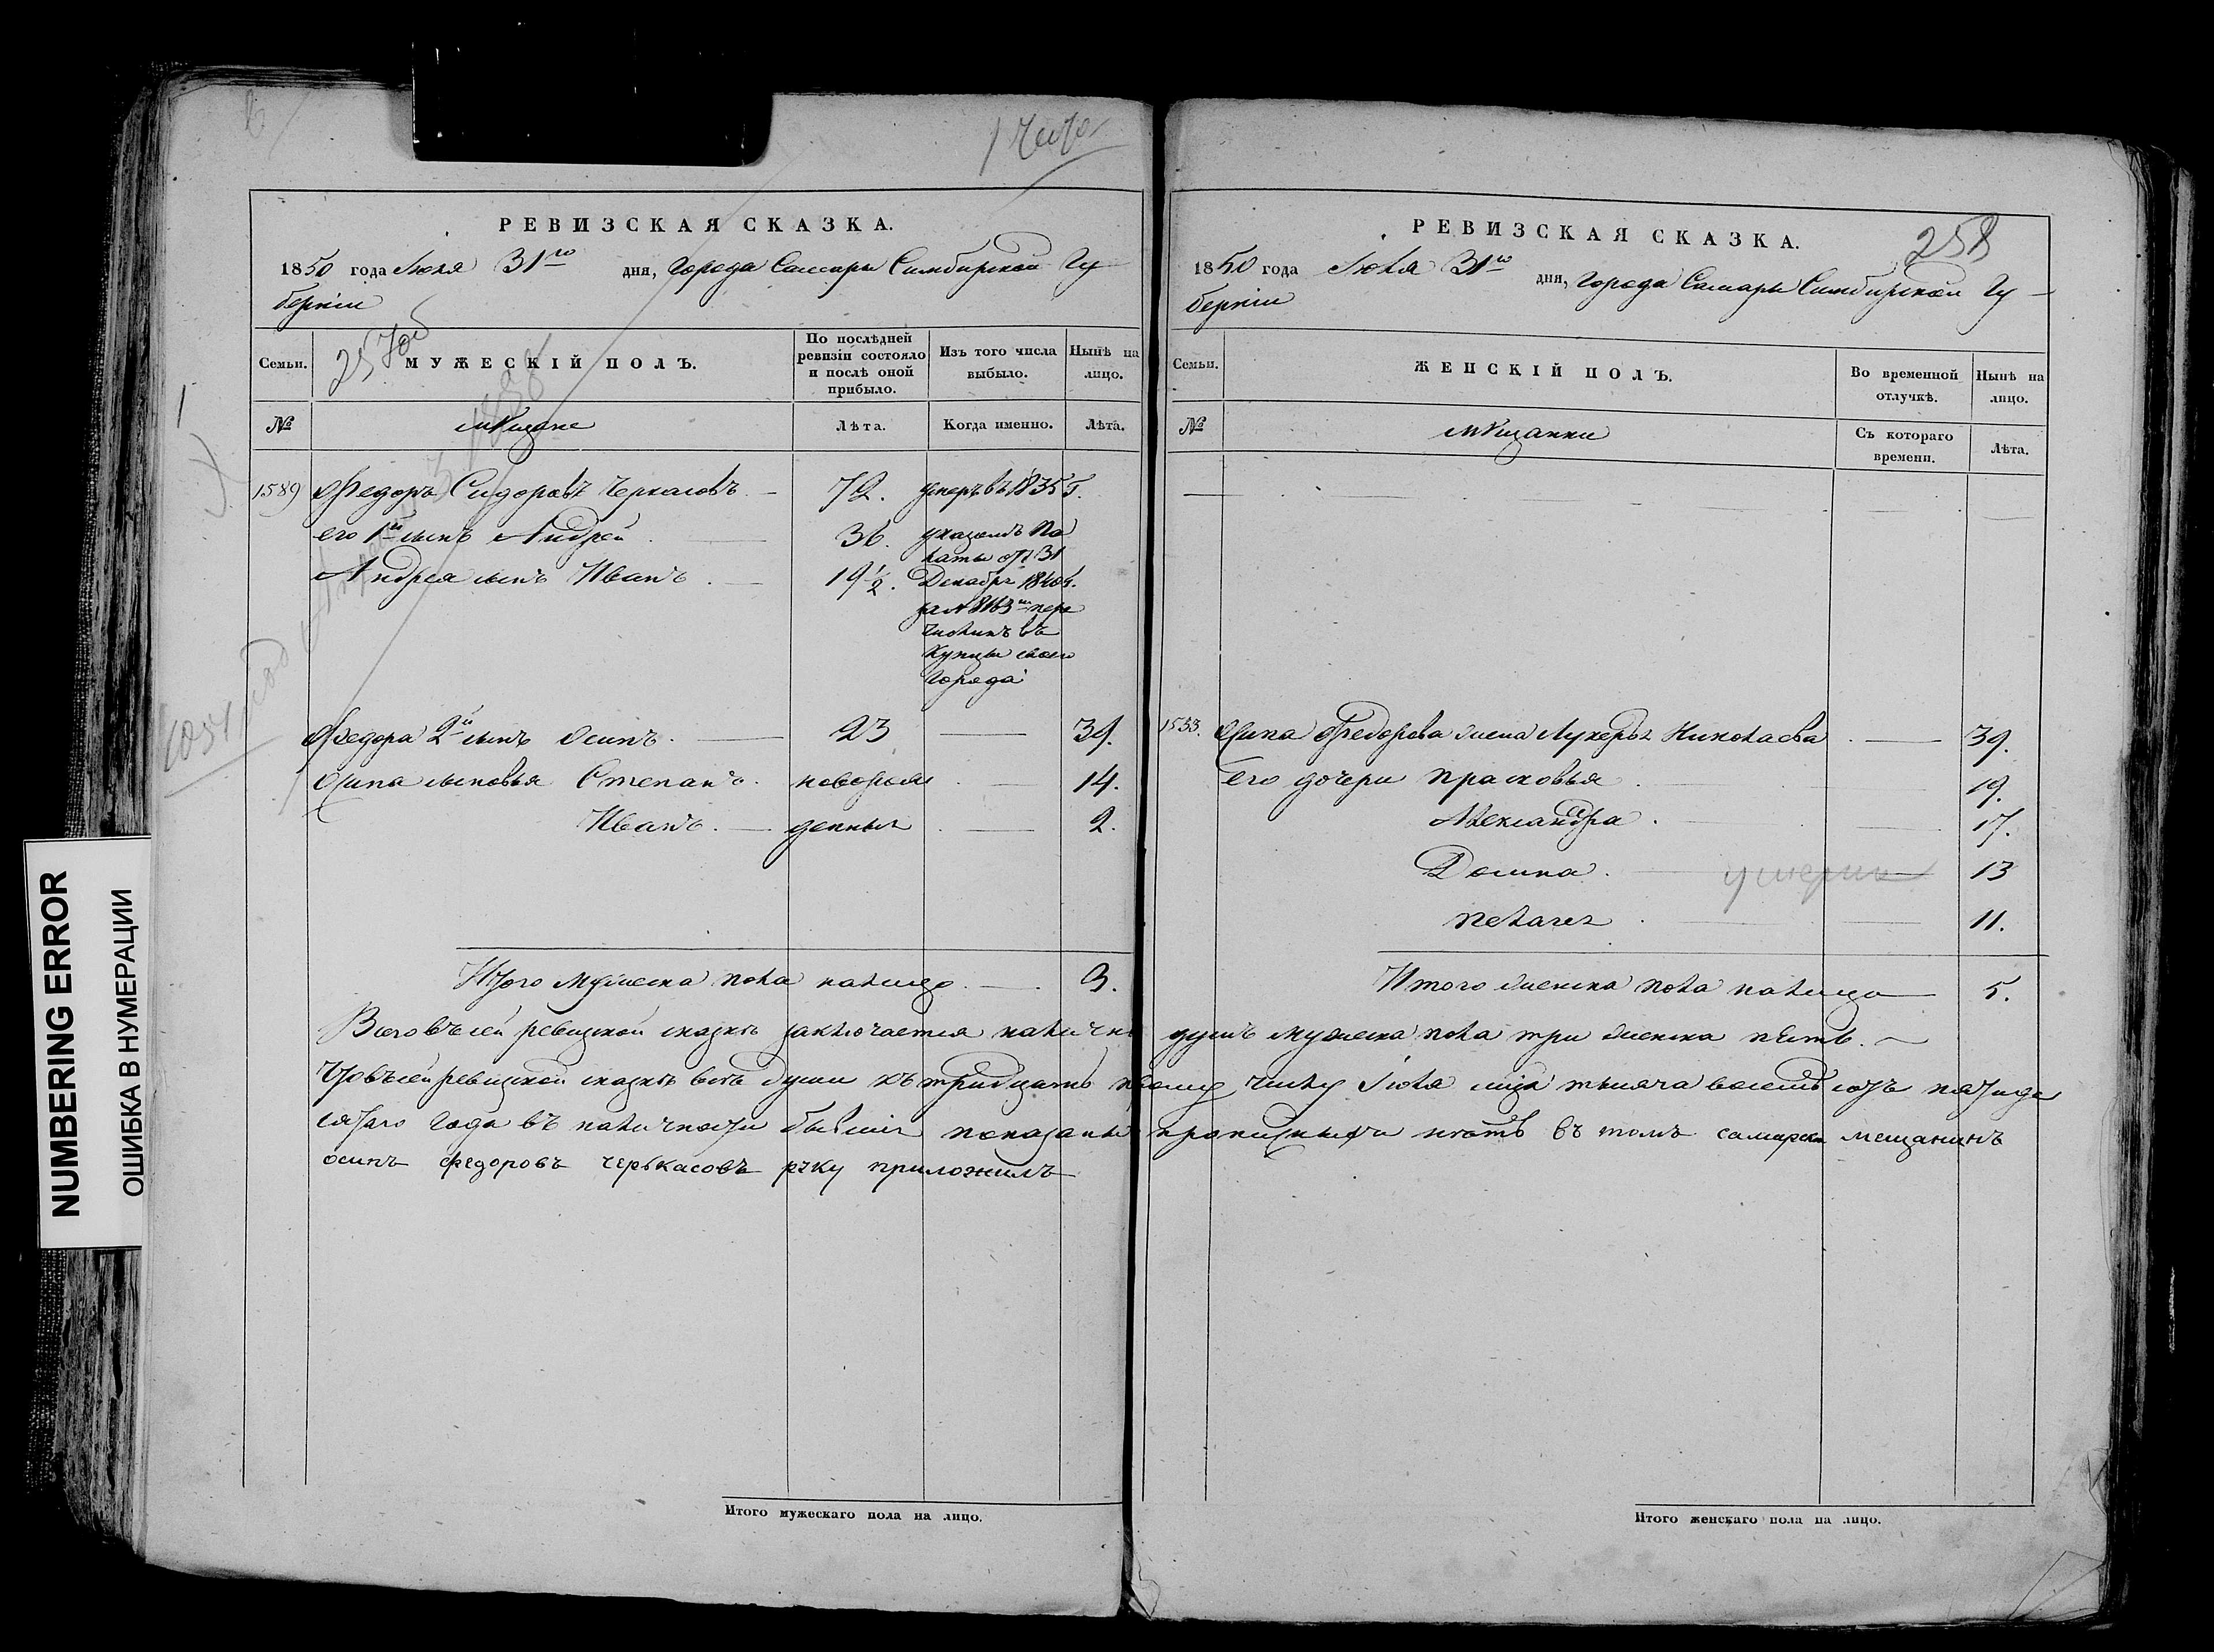 258
РЕВИЗСКАЯ СКАЗКА.
1850 года Июля 31го дня, Города Самары Симбирской Гу
берніи
Семьи.
МУЖЕСКІЙ ПОЛЪ.
По послѣдней ревизіи состояло и послѣ оной прибыло.
Изъ того числа выбыло.
Нынѣ на лицо.
№
мѣщане
Лѣта.
Когда именно.
Лѣта.
1589 Федоръ Сидоровъ Черкасовъ 72. умеръ въ 1835 г.
его 1й сынъ Андрей 36. указомъ Па
латы отъ 31
Андрея сынъ Иванъ 19½. Декабря 1840 г.
за № 8163м пере
численъ въ
купцы сего
города
Федора 2й сынъ Осипъ 23 39.
Осипа сыновья Степанъ новорож 14.
Иванъ. денныя 2.
Итого мужеска пола налицо 3.
РЕВИЗСКАЯ СКАЗКА.
1850 года Июля 31го дня, Города Самары Симбирской Гу
берніи
Семьи.
ЖЕНСКІЙ ПОЛЪ.
Во временной отлучкѣ.
Нынѣ на лицо.
№
мѣщанки
Съ котораго времени.
Лѣта.
1533. Осипа Федорова жена Лукерья Николаева 39.
Его дочери Прасковья 19.
Александра 17.
Домна 13
Пелагея 11.
Итого женска пола налицо 5.
Всего въ сей ревизской сказкѣ заключается налично душъ мужеска пола три женска пять.
Что въ сей ревизской сказкѣ всѣ души къ тридцать первому числу Июля мца тысяча восемь сотъ пятиде
сятаго года въ наличности бывшія показаны и прописныхъ нѣтъ въ томъ самарски мещанинъ
осипъ федоровъ черькасовъ руку приложилъ
Итого мужескаго пола на лицо.
Итого женскаго пола на лицо.
NUMBERING ERROR
ОШИБКА В НУМЕРАЦИИ